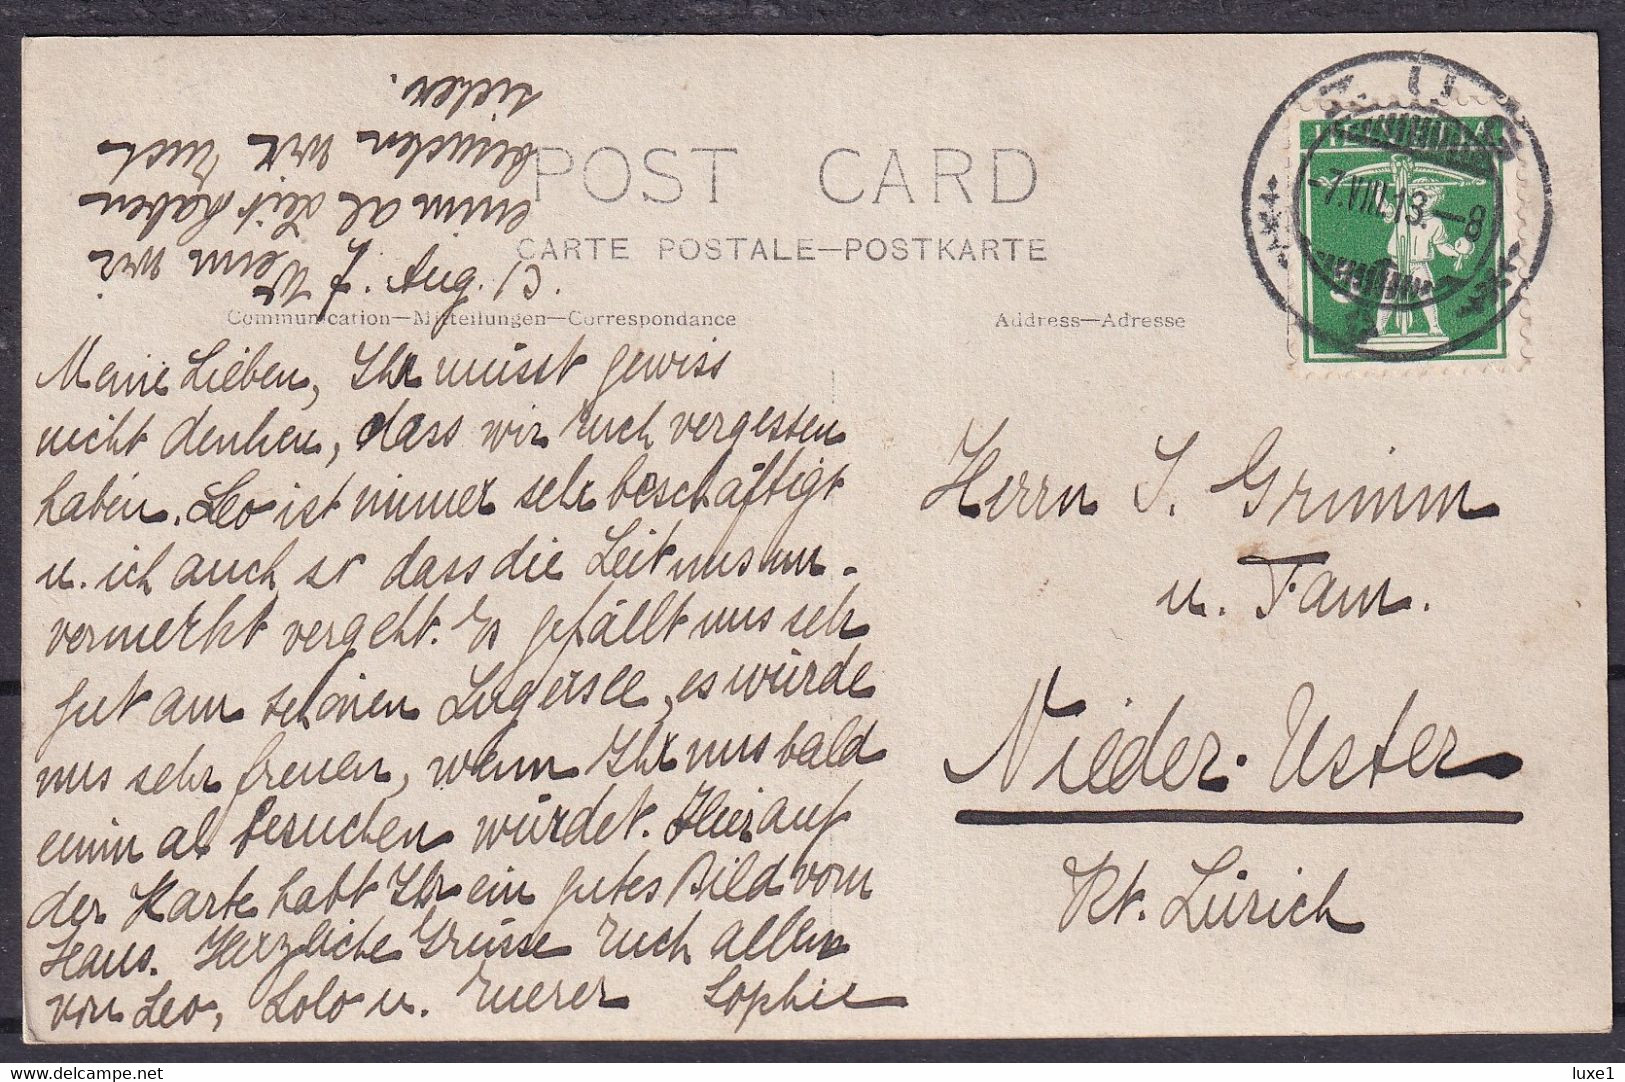 POST CARD
CARTE POSTALE—POSTKARTE
Communication—Mitteilungen—Correspondance
Address—Adresse
ZUG
-7.VIII.13.—8
HELVETIA
7. Aug. 13.
Meine Lieben, Ihr müsst gewiss
nicht denken, dass wir Euch vergessen
haben. Leo ist immer sehr beschäftigt
u. ich auch so dass die Zeit uns un-
vermerkt vergeht. Es gefällt uns sehr
gut am schönen Zugersee, es würde
uns sehr freuen, wenn Ihr uns bald
einmal besuchen würdet. Hier auf
der Karte habt Ihr ein gutes Bild vom
Haus. Herzliche Grüsse Euch allen
von Leo, Lolo u. Euerer Sophie
Wenn wir
einmal Zeit haben
besuchen wir Euch
sicher.
Herrn J. Grimm
u. Fam.
Nieder-Uster
Kt. Zürich
luxe1
delcampe.net